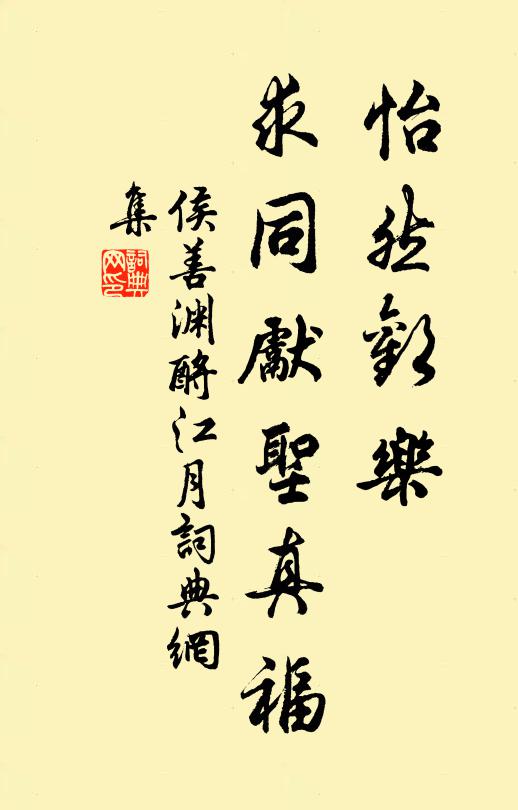 怡然歡樂
求同獻聖真福
侯善淵酹江月詞典網
集
詞典網印